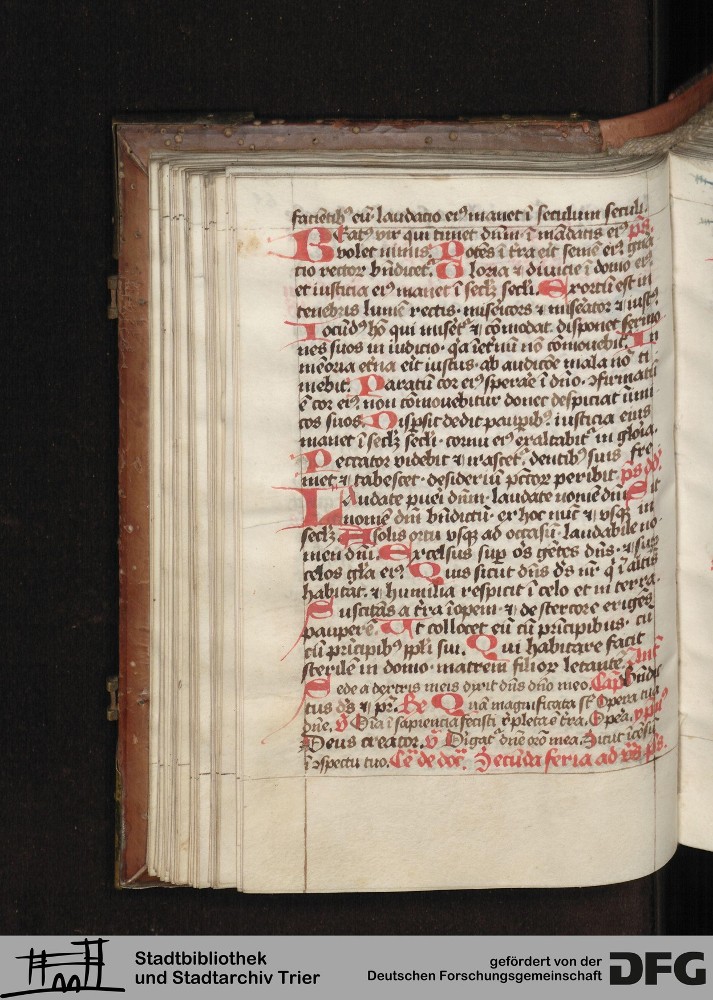 facientibꝰ eū· laudatio eiꝰ manet ī seculum seculi.
Beatꝰ vir qui timet dnm̄· ī mādatis eiꝰ ps̄.
volet nimis. Potēs ī tr̄a erit semē eiꝰ gn̄a
cio rector bn̄dicetᷣ. Gloria ⁊ diuicie ī domo eiꝰ
et iusticia eiꝰ manet ī seclꝫ secli. Exortū est in
tenebris lumē rectis· misericors ⁊ miserator ⁊ iustꝰ
Iocūdꝰ hō qui miseretᷣ ⁊ cōmodat· disponet sermo
nes suos in iudicio· qꝛ ī et̄nū nō cōmouebitᷣ. In
memoria et̄na erit iustus· ab audicōe mala nō ti
mebit. Paratū cor eiꝰ sperare ī dn̄o· ↄfirmatū
ē cor eiꝰ non cōmouebitur donec despiciat inimi
cos suos. Dispsit dedit pauꝑibꝰ iusticia eius
manet ī seclꝫ secli· cornu eiꝰ exaltabitᷣ in gloria.
Peccator videbit ⁊ irascetᷣ· dentibꝰ suis fre
met ⁊ tabescet· desideriū pctōr peribit. ps̄ dd̄.
Laudate pueri dnm̄· laudate nomē dni Sit
nomē dni bn̄dictū· ex hoc nūc ⁊ vsqꝫ in
seclꝫ A solis ortu vsqꝫ ad occasū· laudabile no·
men dni. Excelsus suꝑ os̄ gētes dn̄s· ⁊ suꝑ
celos glīa eiꝰ. Quis sicut dn̄s ds̄ nr̄ qͥ ī altis
habitat· ⁊ humilia respicit ī celo et in terra.
Suscitās a tr̄a īopem· ⁊ de stercore erigēs
pauperē. Ut collocet eū cū principibus· cū
cū principibꝰ ppli sui. Qui habitare facit
sterilē in domo· matrem filiorꝝ letantē. Ant̄
Sede a dextris meis dixit dn̄s dn̄o meo. Cap̄ Bn̄dic
tus ds̄ ⁊ pr̄. Re Quā magnificata st̄ Opera tua
dn̄e. ℣ Oīa ī sapiencia fecisti r̄pleta ē tr̄a. Opera.
Deus creator. ℣ Dirigatᷣ dn̄e orō mea. Sicut īcēsū
ī ↄspectu tuo. Secūda feria ad vs̄ ps̄.
Stadtbibliothek
und Stadtarchiv Trier
gefördert von der
Deutschen Forschungsgemeinschaft
DFG